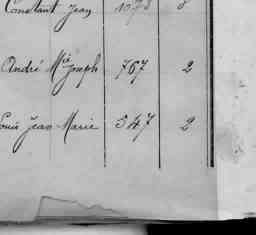 Constant Jean 1073
André Mie Joseph 767 2
Louis Jean Marie 547 2